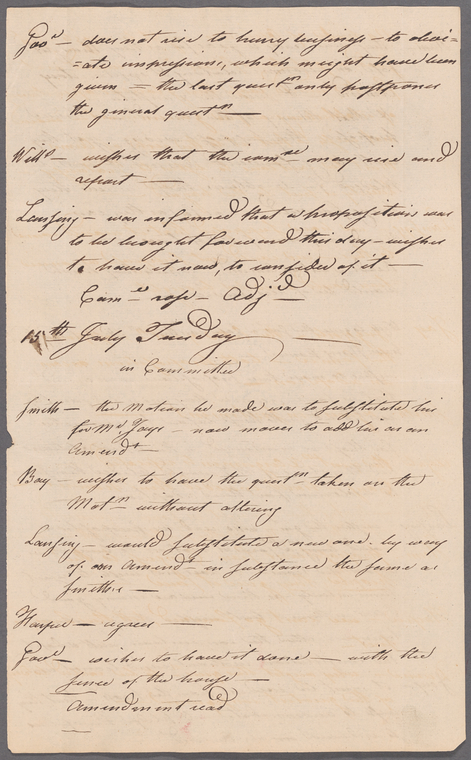 Gov.r — does not rise to hurry business — to obvi-
=ate impressions, which might have been
given — the last quest.n only postpones
the general quest.n —
Will.s — wishes that the com.ee may rise and
report —
Lansing — was informed that a proposition was
to be brought forward this day — wishes
to have it now, to consider of it —
Com.ee rose — Adj.d —
15th July Tuesday
in Committee
Smith — the Motion he made was to substitute his
for Mr. Jays — now moves to add his as an
Amend.t
Bay — wishes to have the quest.n taken on the
Mot.n without altering
Lansing — would substitute a new one. by way
of an Amend.t — in substance the same as
Smiths —
Harper — agrees —
Gov.r — wishes to have it done — with the
sence of the house —
Amendment read